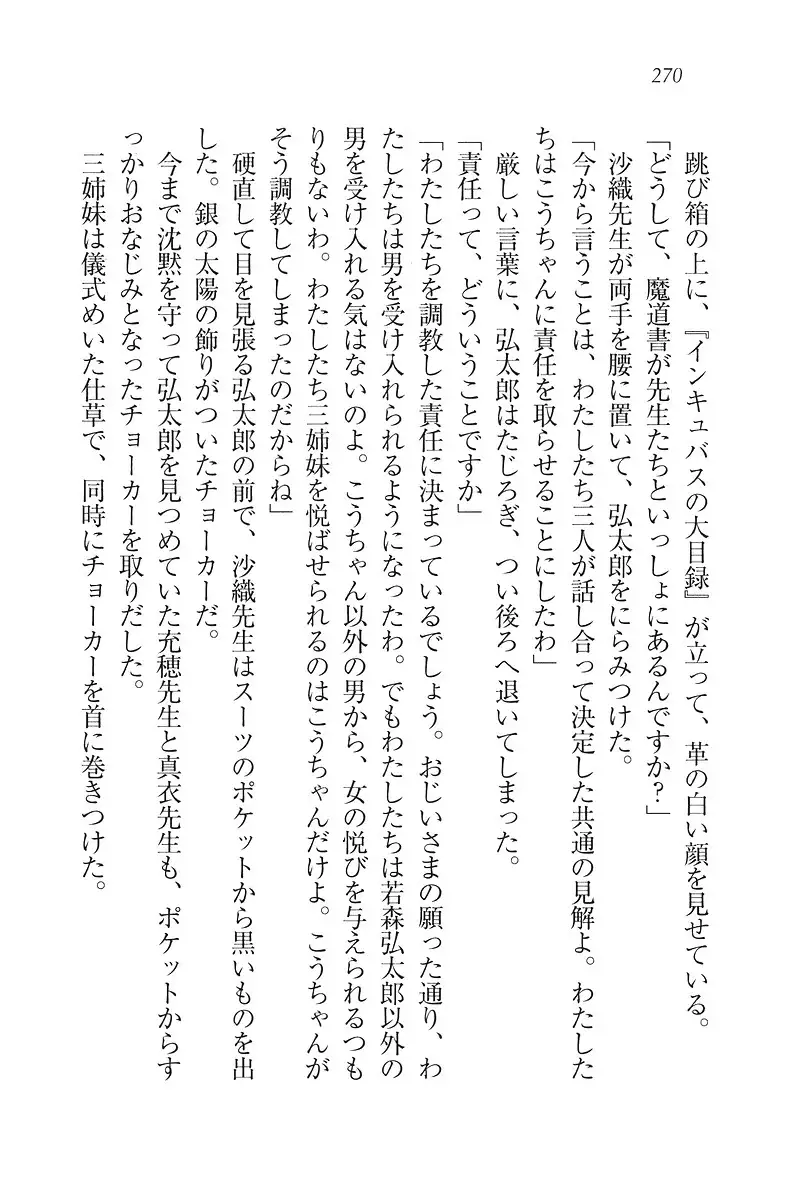 270
跳び箱の上に、『インキュバスの大目録』が立って、革の白い顔を見せている。
「どうして、魔道書が先生たちといっしょにあるんですか?」
沙織先生が両手を腰に置いて、弘太郎をにらみつけた。
「今から言うことは、わたしたち三人が話し合って決定した共通の見解よ。わたした
ちはこうちゃんに責任を取らせることにしたわ」
厳しい言葉に、弘太郎はたじろぎ、つい後ろへ退いてしまった。
「責任って、どういうことですか」
「わたしたちを調教した責任に決まっているでしょう。おじいさまの願った通り、わ
たしたちは男を受け入れられるようになったわ。でもわたしたちは若森弘太郎以外の
男を受け入れる気はないのよ。こうちゃん以外の男から、女の悦びを与えられるつも
りもないわ。わたしたち三姉妹を悦ばせられるのはこうちゃんだけよ。こうちゃんが
そう調教してしまったのだからね」
硬直して目を見張る弘太郎の前で、沙織先生はスーツのポケットから黒いものを出
した。銀の太陽の飾りがついたチョーカーだ。
今まで沈黙を守って弘太郎を見つめていた充穂先生と真衣先生も、ポケットからす
っかりおなじみとなったチョーカーを取りだした。
三姉妹は儀式めいた仕草で、同時にチョーカーを首に巻きつけた。